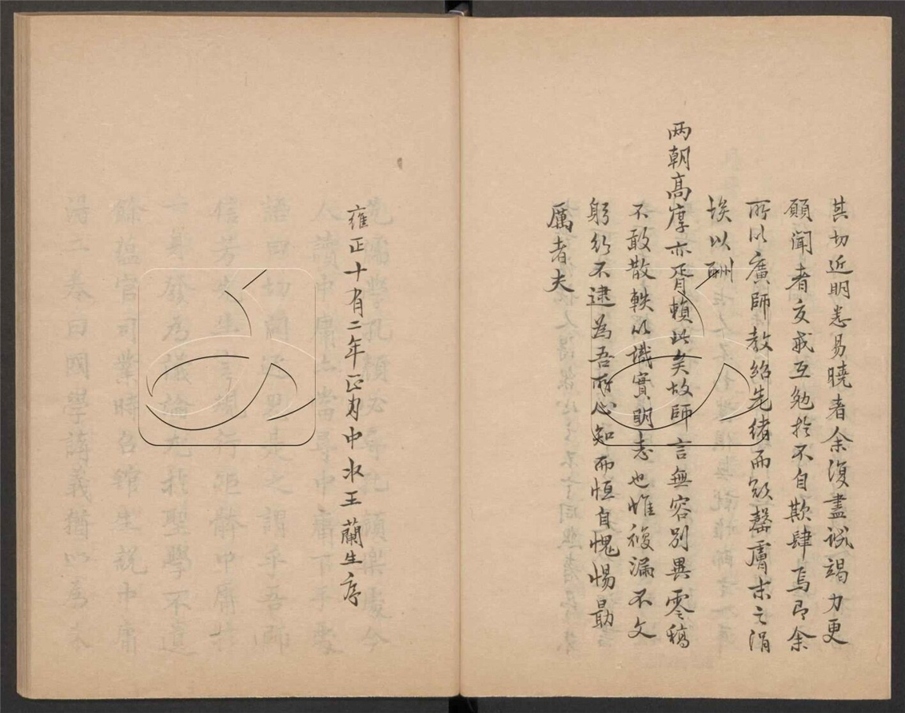 其切近明悉易曉者余復盡說竭力更
願聞者交戒互勉於不自欺肆焉即余
所以廣師教紹先緒而欲罄膚末之涓
埃以酬
兩朝高厚亦胥賴此矣故師言無容別異零稿
不敢散軼以識實明志也惟複漏不文
躬行不逮為吾所心知而恒自愧惕勗
厲者夫
雍正十有二年正月中水王蘭生序